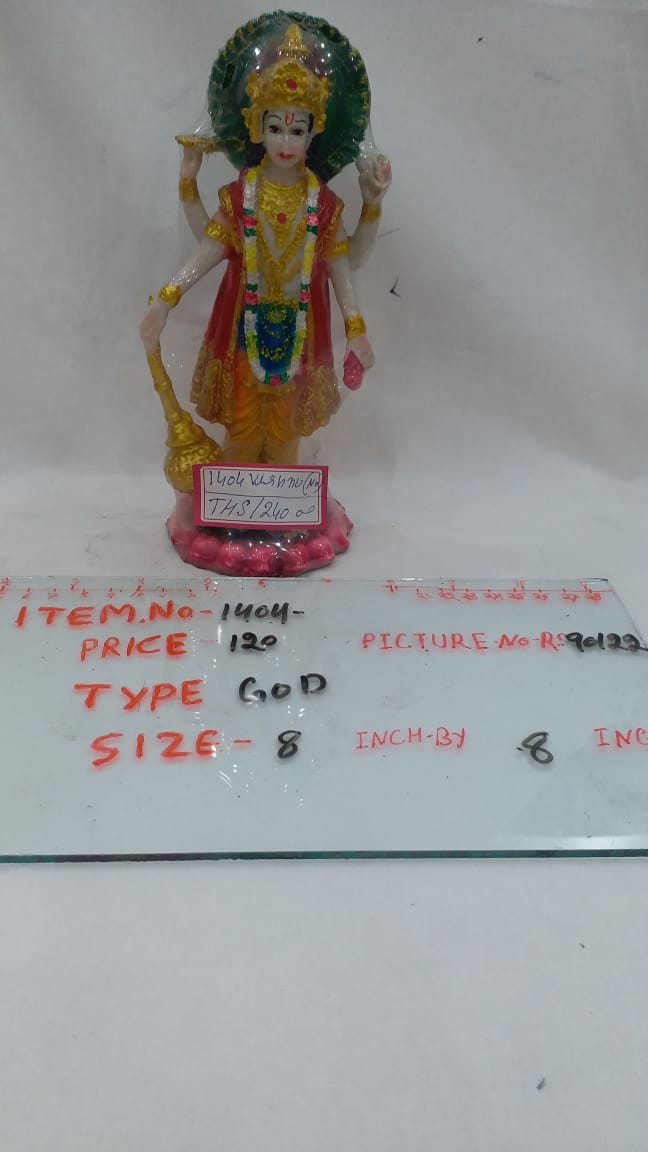 1404
THS/240
ITEM.No-1404-
PRICE - 120 PICTURE-No-RS90122
TYPE GOD
SIZE- 8 INCH-BY 8 INC